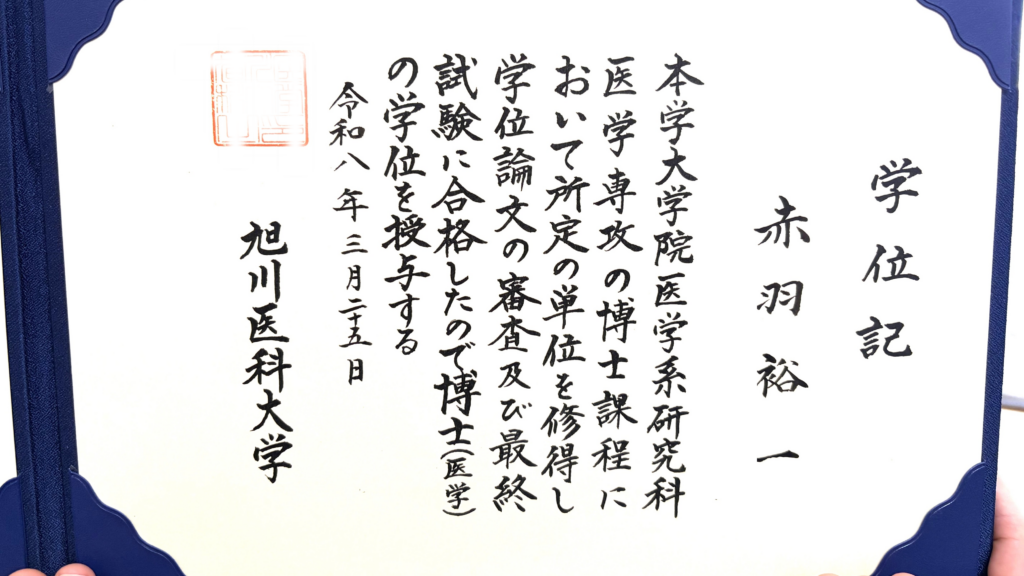 学位記
赤羽裕一
本学大学院医学系研究科
医学専攻の博士課程に
おいて所定の単位を修得し
学位論文の審査及び最終
試験に合格したので博士(医学)
の学位を授与する
令和八年三月二十五日
旭川医科大学